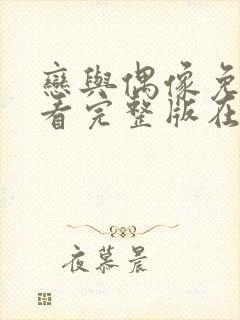 戀與偶像免
看完整版在
夜慕晨